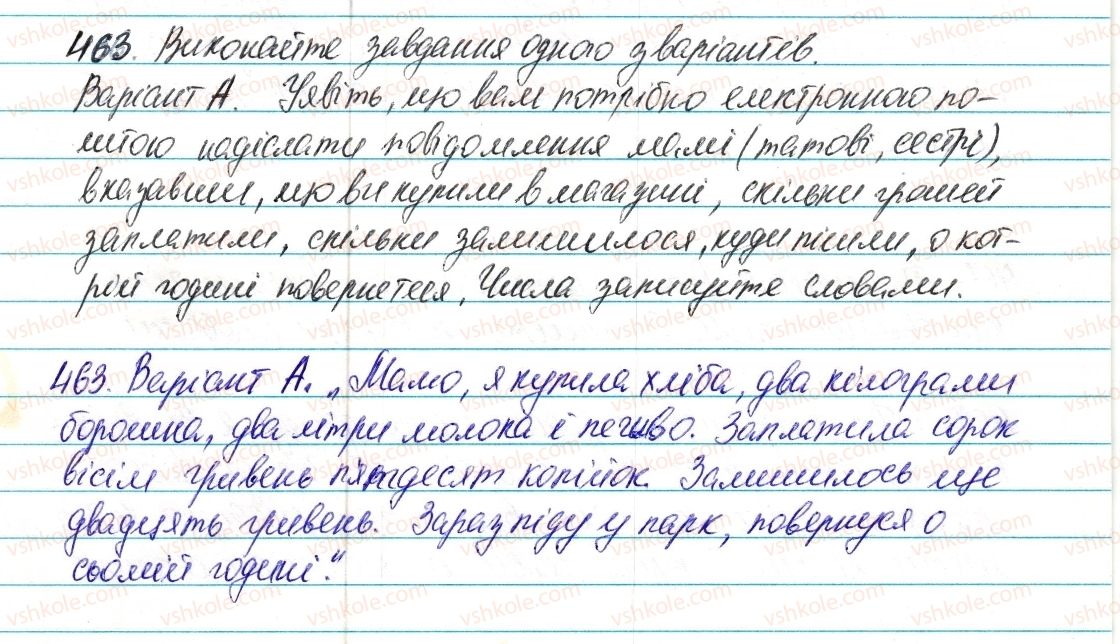 463. Виконайте завдання одного з варіантів.
Варіант А. Уявіть, що вам потрібно електронною по-
штою надіслати повідомлення мамі (татові, сестрі),
вказавши, що ви купили в магазині, скільки грошей
заплатили, скільки залишилося, куди пішли, о кот-
рій годині повернетеся. Числа записуйте словами.
463. Варіант А. „Мамо, я купила хліба, два кілограми
борошна, два літри молока і печиво. Заплатила сорок
вісім гривень п'ятдесят копійок. Залишилось ще
двадцять гривень. Зараз піду у парк, повернуся о
сьомій годині."